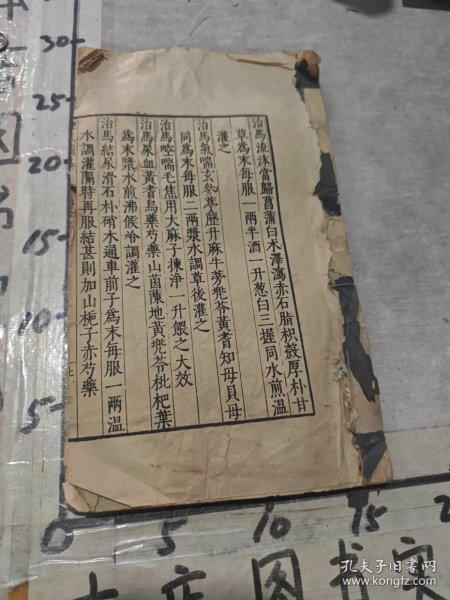 治馬流沫當歸菖蒲白术澤瀉赤石脂枳殼厚朴甘
草為末每服一兩半酒一升葱白三握同水煎温
灌之
治馬氣喘玄參葶藶升麻牛蒡兜苓黃耆知母貝母
同為末每服二兩漿水調草後灌之
治馬啌喘毛焦用大麻子揀淨一升餵之大效
治馬尿血黃耆烏藥芍藥山茵蔯地黃兜苓枇杷葉
為末漿水煎沸候冷調灌之
治馬結尿滑石朴硝木通車前子為末每服一兩温
水調灌隔時再服結甚則加山梔子赤芍藥
30
25
20
15
10
5
0
5
10
15
2
店图书实
孔夫子旧书网
www.kongfz.com